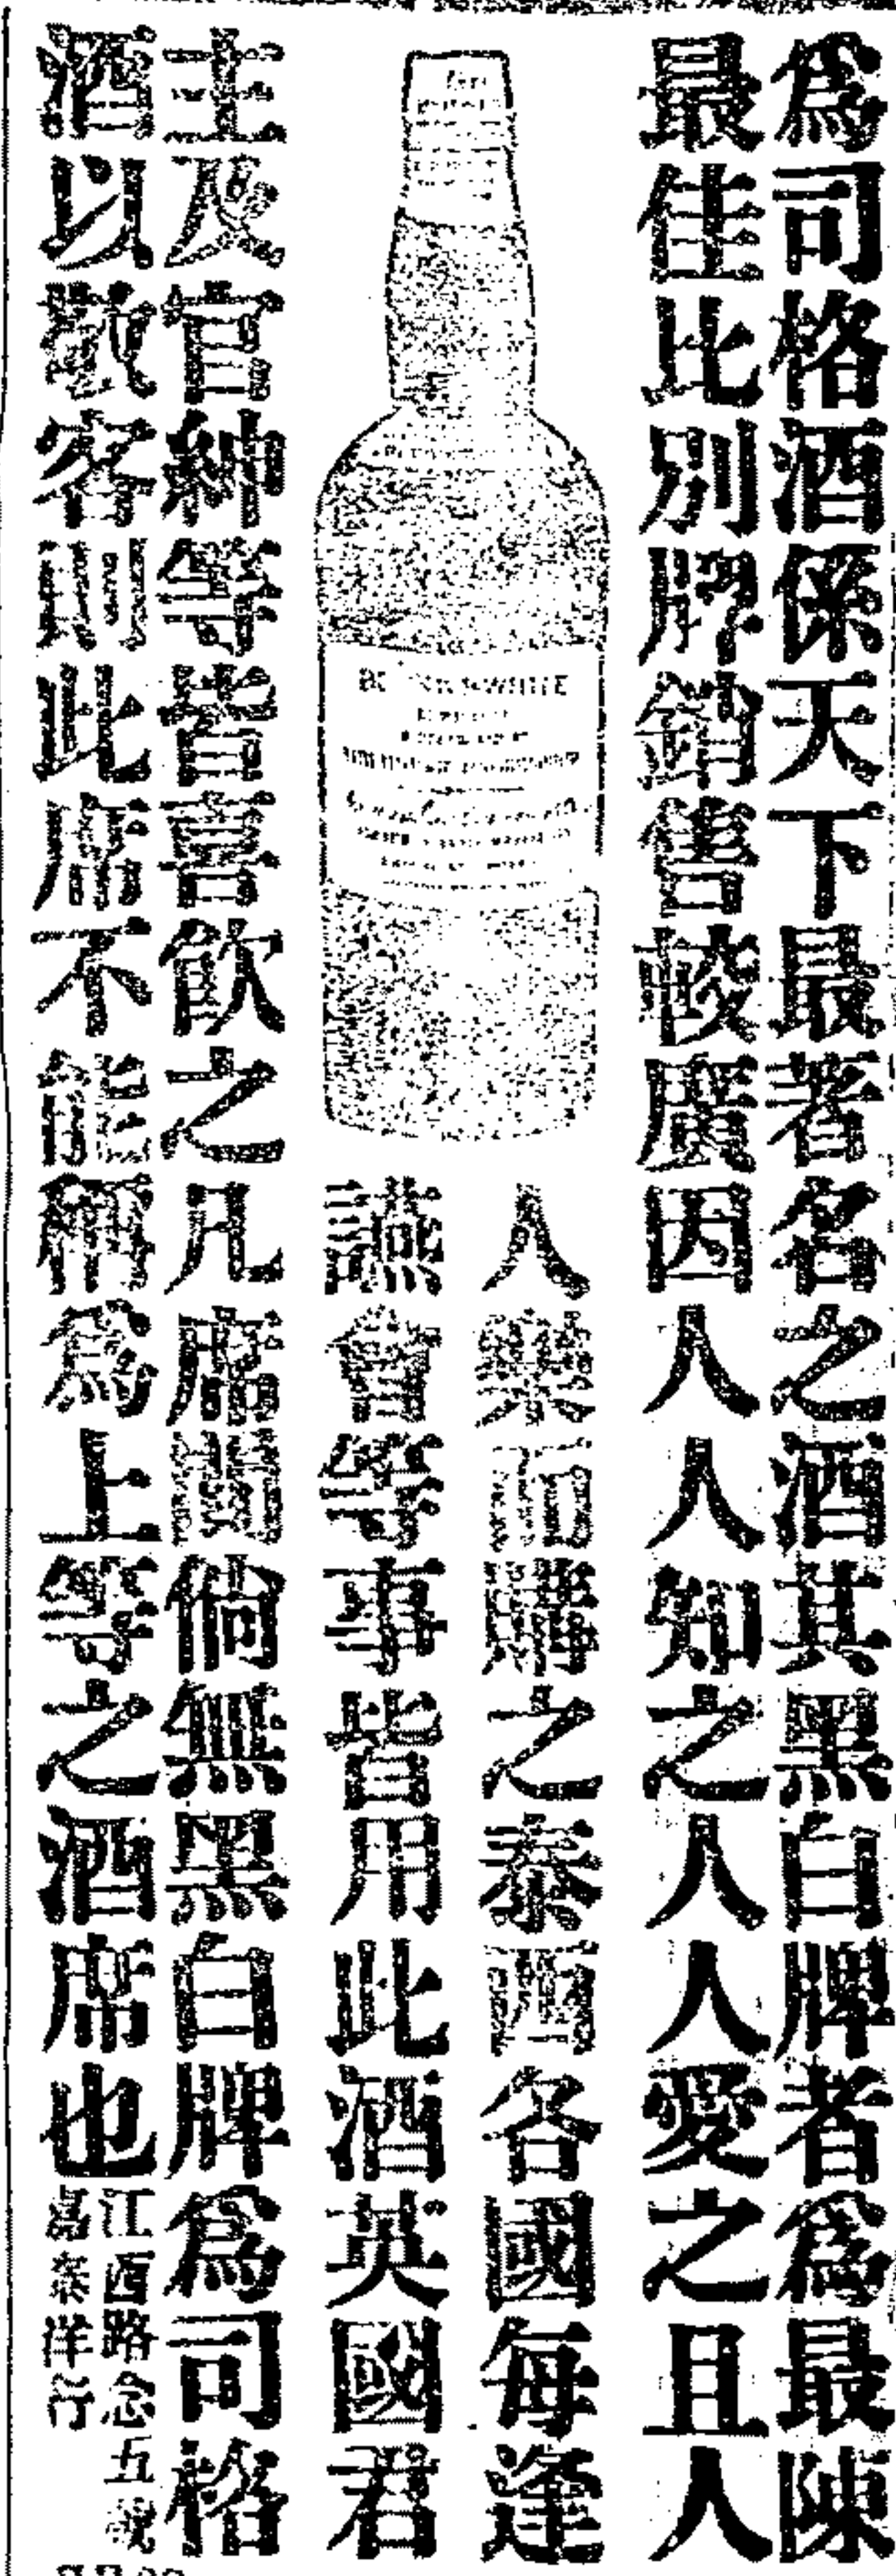 爲司格酒係天下最著名之酒其黑白牌者爲最陳
最佳比別牌銷售較廣因人人知之人人愛之且人
人樂而購之泰西各國每逢
讌會等事皆用此酒英國君
主及官紳等皆喜飲之凡席間倘無黑白牌爲司格
酒以敬客則此席不能稱爲上等之酒席也
江西路念五號
泰洋行
WHITE